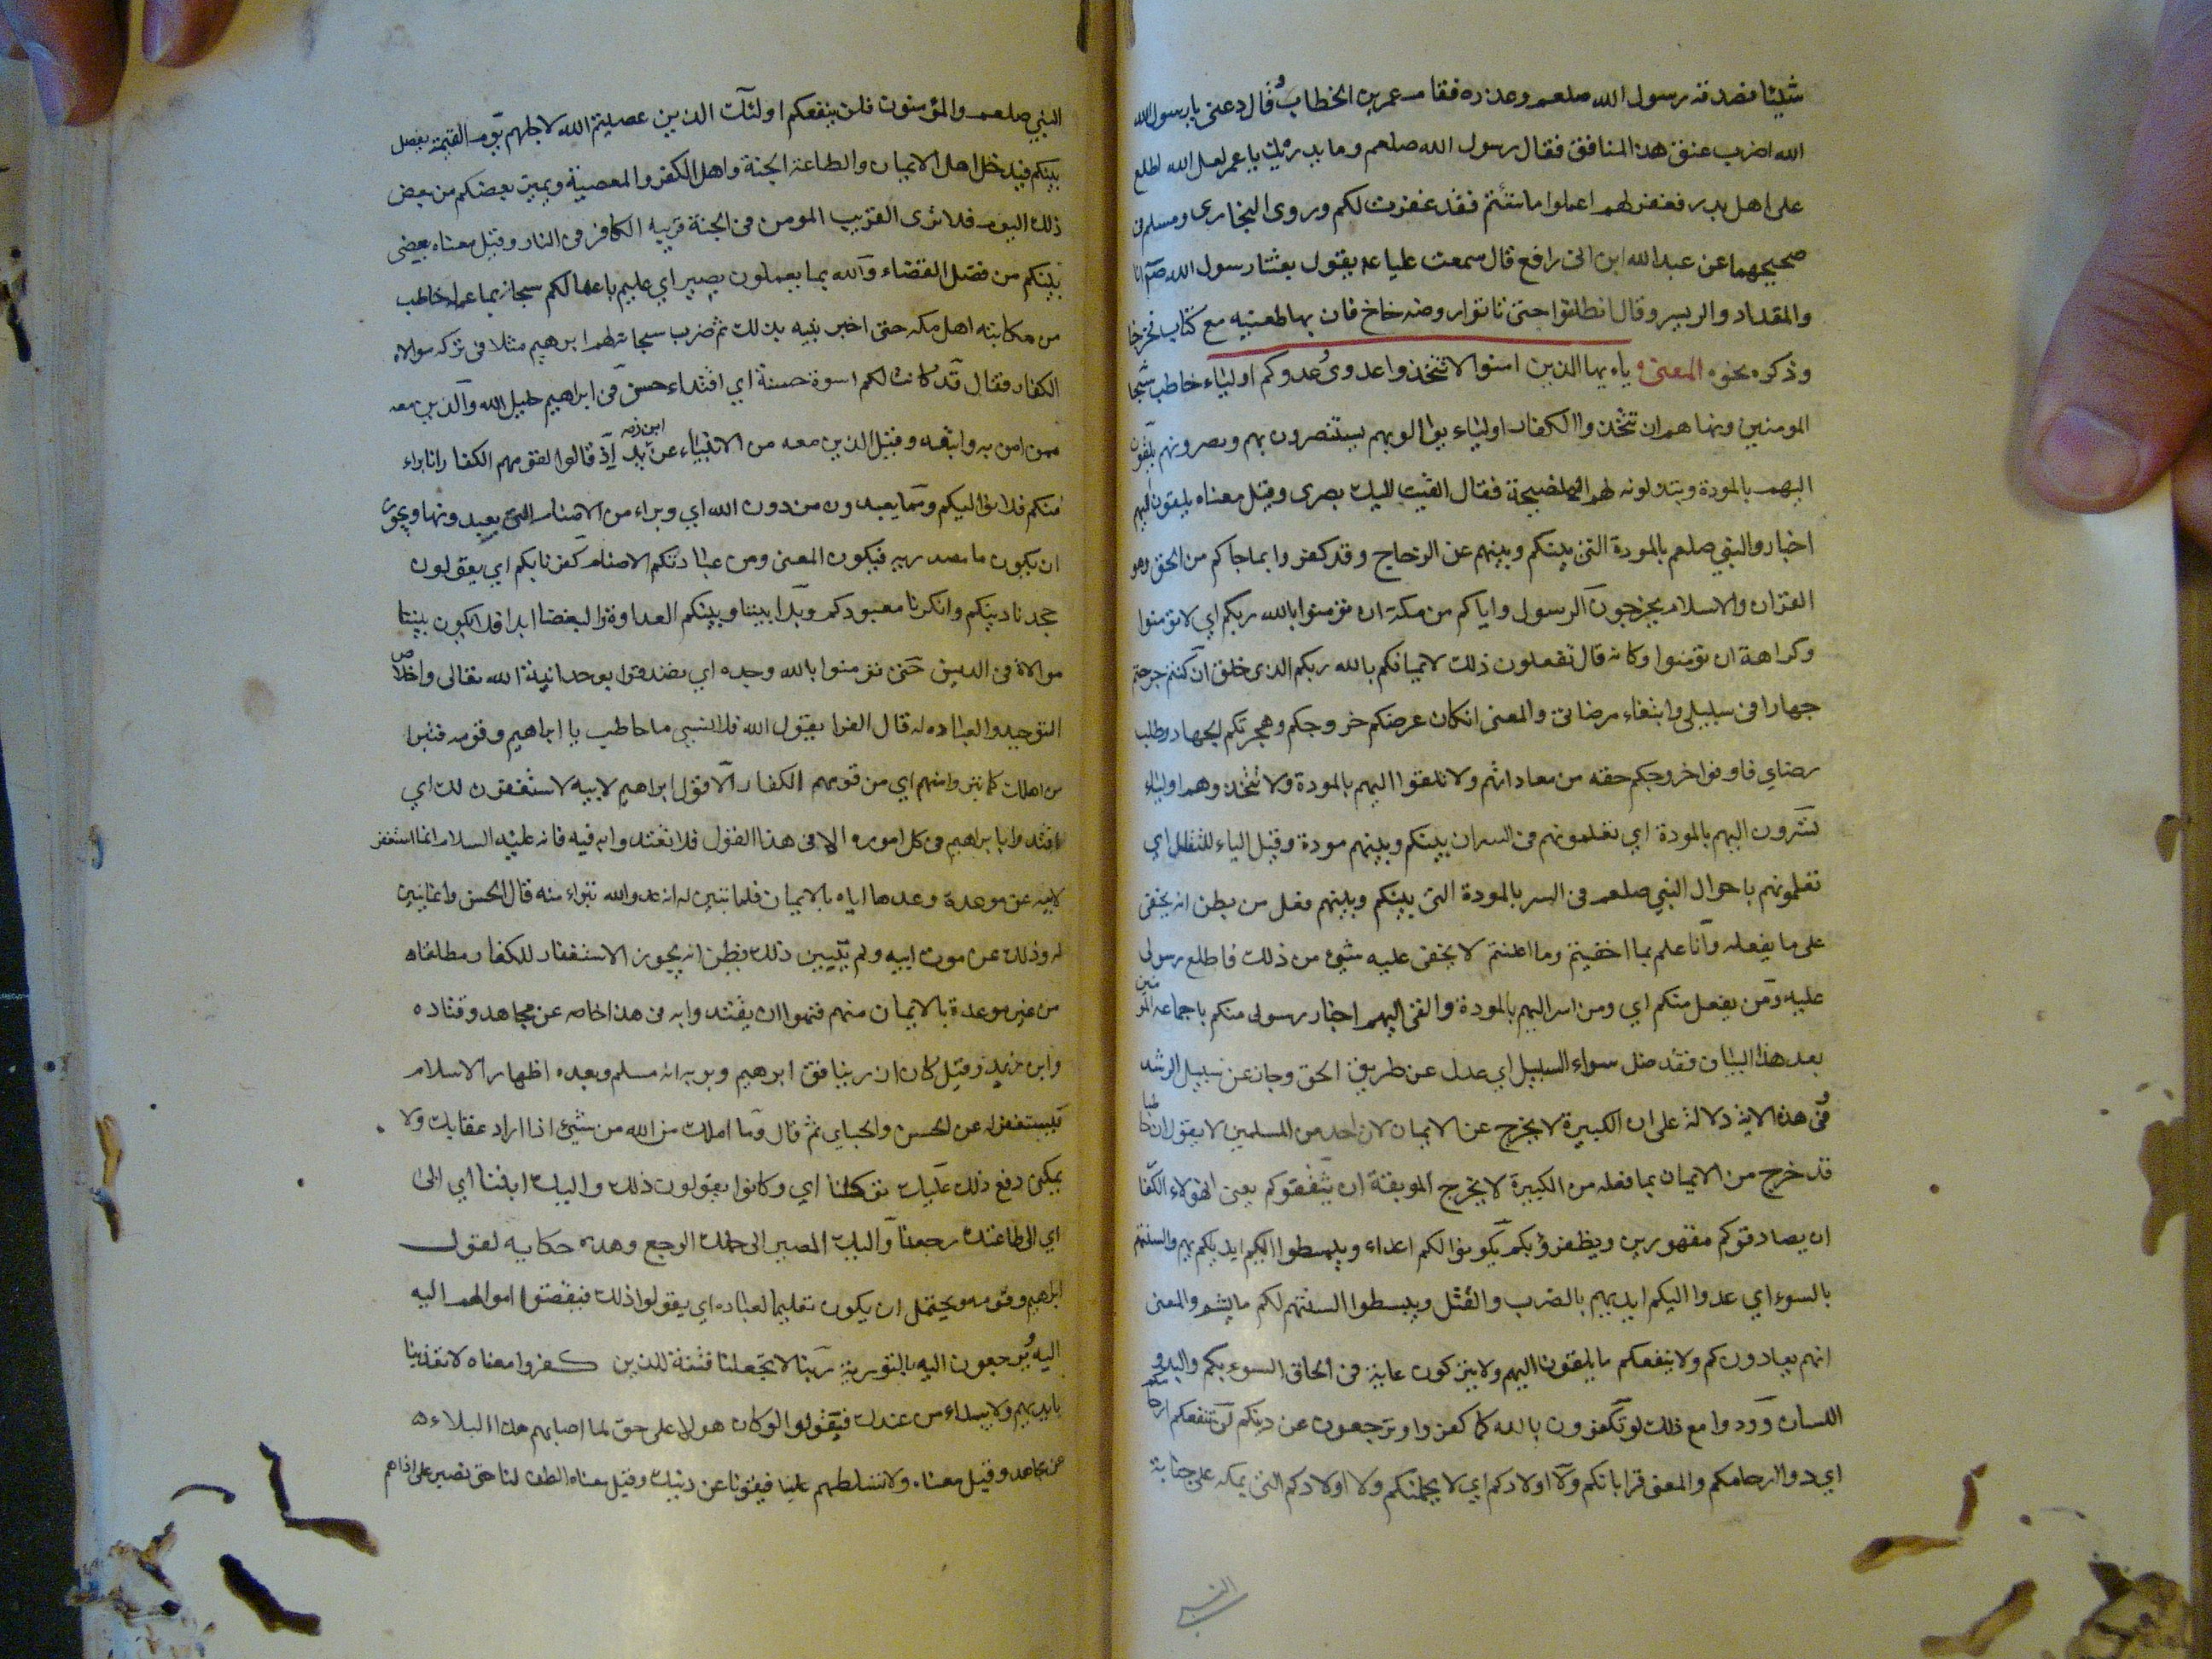 شيئا فصدقه رسول الله صلعم وعذره فقام عمر بن الخطاب وقال دعنى يا رسول الله
الله اضرب عنق هذا المنافق فقال رسول الله صلعم وما يدريك يا عمر لعل الله اطلع
على اهل بدر فغفر لهم اعملوا ما شئتم فقد غفرت لكم وروى البخارى ومسلم فى
صحيحهما عن عبد الله ابن ابى رافع قال سمعت عليا يقول بعثنا رسول الله انا
والمقداد والزبير وقال انطلقوا حتى تاتوا روضه خاخ فان بها ظعنيه مع كتاب فخرجنا
وذكره نحوه المعنى يا ايها الذين امنوا لا تتخذوا عدوى وعدوكم اولياء خاطب سبحانه
المومنين ونهاهم ان تتخذوا الكفار اولياء يوالونهم يستنصرون بهم وينصرونهم تلقون
اليهم بالمودة ويبذلونه لهم النصيحة فقال القيت اليك بصرى وقيل معناه يلقون اليهم
اخبار والنبي صلعم بالمودة التى بينكم وبينهم عن الزجاج وقد كفروا بما جاكم من الحق وهو
القران والاسلام يخرجون الرسول واياكم من مكة ان تؤمنوا بالله ربكم اي لا تؤمنوا
وكراهة ان تؤمنوا وكانه قال تفعلون ذلك لايمانكم بالله ربكم الذى خلقكم ان كنتم خرجتم
جهارا فى سبيلى وابتغاء مرضاتى والمعنى ان كان غرضكم خروجكم وهجرتكم الجهاد وطلب
رضاي فاوفوا خروجكم حقه من معاداتهم ولا تلقوا اليهم بالمودة ولا تتخذوهم اولياء
تسرون اليهم بالمودة اي تعلمونهم فى السر ان بينكم وبينهم مودة وقيل الباء للتعليل اي
تعلمونهم باحوال النبي صلعم فى السر بالمودة التى بينكم وبينهم فعل من يظن انه يخفى
على ما يفعله وانا علم بما اخفيتم وما اعلنتم لا يخفى عليه شيئ من ذلك فاطلع رسولى
عليه ومن يفعل منكم اي ومن اسر اليهم بالمودة والقى اليهم اخبار رسولى منكم يا جماعه المومنين
بعد هذا البيان فقد ضل سواء السبيل اي عدل عن طريق الحق وجاز عن سبيل الرشد
وفى هذه الايه دلالة على ان الكبيرة لا يخرج عن الايمان لان احد من المسلمين لا يقول ان حاطبا
قد خرج من الايمان بما فعله من الكبيرة لا يخرج الموبقة ان يثقفوكم يعنى الهولاء الكفا
ان يصادفوكم مقهورين ويظفروبكم يكونوا لكم اعداء ويبسطوا اليكم ايديكم بهم والسنتهم
بالسوء اي عدوا اليكم ايديهم بالضرب والقتل ويبسطوا السنتهم لكم مالشتم والمعنى
انهم يعادونكم ولا ينفعكم ما يلقون اليهم ولا يتركون غاية فى الحاق السوء بكم واليد و
اللسان وودوا مع ذلك لو تكفرون بالله كما كفروا وترجعون عن دينكم لن تنفعكم ارحامكم
اي ذوا ارحامكم والمعنى قراباتكم ولا اولادكم اي لا يحملنكم ولا اولادكم التى بمكه على خيانة
النبي صلعم والمؤمنون فلن ينفعكم اولئك الذين عصيتم الله لاجلهم يوم القيمة يفصل
بينكم فيدخل اهل الايمان والطاعة الجنة واهل الكفر والمعصية ويميز بعضكم من بعض
ذلك اليوم فلا ترى القريب المومن فى الجنة قريبه الكافر فى النار وقيل معناه يقضى
بينكم من فصل القضاء والله بما يعملون بصير اي عليم باعمالكم سبحانه بما عمله خاطب
من مكاتبته اهل مكه حتى اخبر نبيه بذلك ثم ضرب سبحانه لهم ابرهيم مثلا فى تركه موالاه
الكفار فقال قد كانت لكم اسوة حسنة اي اقتداء حسن فى ابراهيم خليل الله والذين معه
ممن امن به واتبعه وقيل الذين معه من الانبياء عن ابن زيد اذ قالوا لقومهم الكفار انا براء
منكم فلا نواليكم ومما يعبدون من دون الله اي وبراء من الاصنام التى يعبدونها ويجوز
ان يكون ما مصدريه فيكون المعنى ومن عبادتكم الاصنام كفرنا بكم اي يقولون
جحدنا دينكم وانكرنا معبودكم وبدا بيننا وبينكم العداوة والبغضا ابدا فلا يكون بيننا
موالاة فى الدين حتى تؤمنوا بالله وحده اي تصدقوا بوحدانية الله تعالى واخلاص
التوحيد والعباده له قال الفرا يقول الله فلا تنسى ما حاطب يا ابراهيم وقومه فتبرا
من اهلك كما تبروا منهم اي من قومهم الكفار الا قول ابراهيم لابيه لاستغفرن لك اي
اقتدوا بابراهيم فى كل اموره الا فى هذا القول فلا تقتدوا به فيه فانه عليه السلام انما استغفر
لابيه عن موعدة وعدها اياه بالايمان فلما تبين له انه عدو الله تبراء منه قال الحسن وانما تبين
له وذلك عن موت ابيه ولم يتبين ذلك يظن انه يجوز الاستغفار للكفار مطلقاه
من غير موعدة بالايمان منهم فنهوا ان يقتدوا به فى هذا خاصه عن مجاهد وقتاده
وابن زيد وقيل كان ازر ينافق ابرهيم ويريه انه مسلم ويعده اظهار الاسلام
فيستغفر له عن الحسن والجباي ثم قال وما املك من الله من شيئ اذا اراد عقابك ولا
يمكن دفع ذلك عليك توكلنا اي وكانوا يقولون ذلك واليك انبنا اي الى
اي الى طاعتك رجعنا واليك المصير الى حكمك الرجع وهذه حكايه لقول
ابراهيم وقومه ويحتمل ان يكون تعليما لعباده اي يقولوا ذلك فيفضوا امورهم اليه
اليه ويرجعون اليه بالتوبة ربنا لا تجعلنا فتنة للذين كفروا معناه لا تعذبنا
بايديهم ولا ببلاء من عندك فيقولوا لو كان هولا على حق لما اصابهم هذا البلاء
عن مجاهد وقيل معناه ولا تسلطهم علينا فيفتونا عن دينك وقيل معناه الطف لنا حتى نصبر على اذاهم